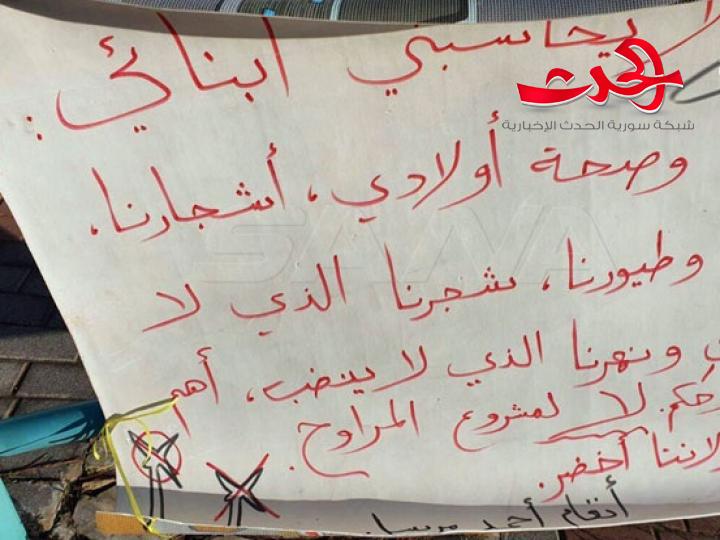 لا يحاسبني ابنائي:
الحدث
شبكة سورية الحدث الإخبارية
وصحة أولادي، أشجارنا،
SANA
وطيورنا، شجرنا الذي لا
ونهرنا الذي لا ينضب، أهم
لا لمشروع المراوح.
لاننا أخضر.
أنغام أحمد